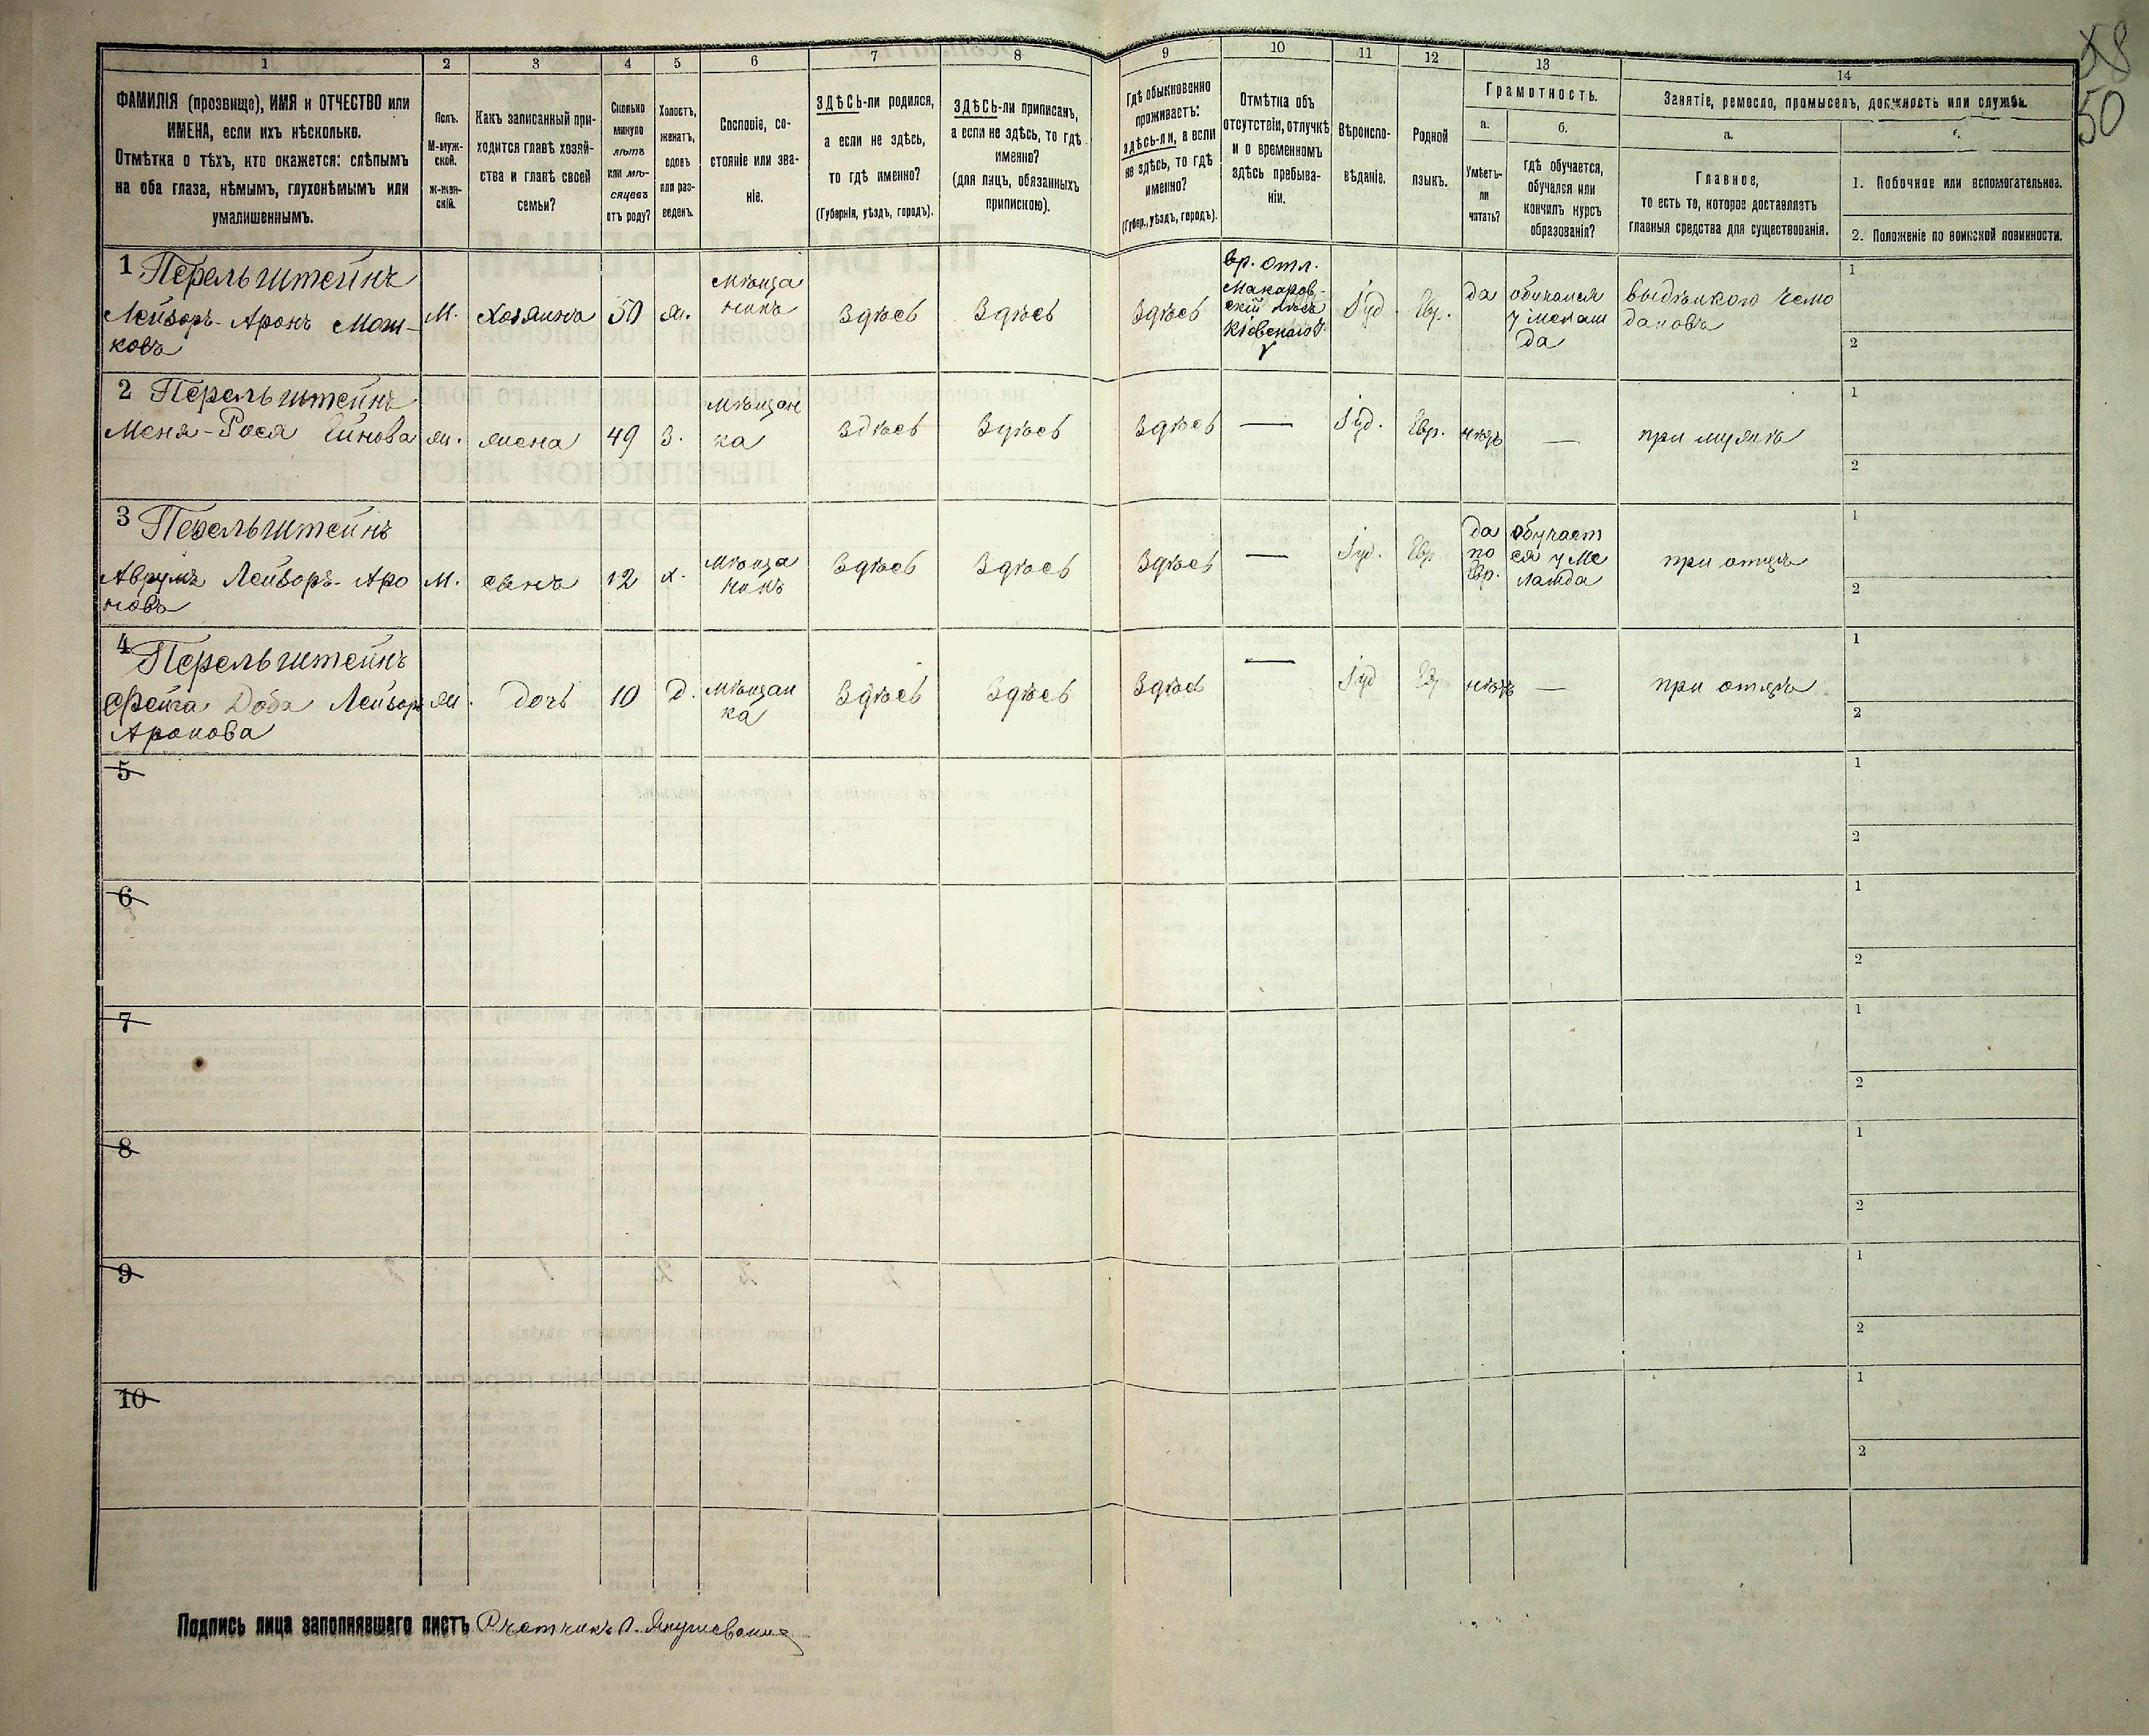 58
50
1 2 3 4 5 6 7 8 9 10 11 12 13 14
ФАМИЛІЯ (прозвище), ИМЯ и ОТЧЕСТВО или
ИМЕНА, если ихъ нѣсколько.
Отмѣтка о тѣхъ, кто окажется: слѣпымъ
на оба глаза, нѣмымъ, глухонѣмымъ или
умалишеннымъ.
Полъ.
М-муж-
ской.
ж-жен-
скій.
Какъ записанный при-
ходится главѣ хозяй-
ства и главѣ своей
семьи?
Сколько
минуло
лѣтъ
или мѣ-
сяцевъ
отъ роду?
Холостъ,
женатъ,
вдовъ
или раз-
веденъ.
Сословіе, со-
стояніе или зва-
ніе.
ЗДѢСЬ-ли родился,
а если не здѣсь,
то гдѣ именно?
(Губернія, уѣздъ, городъ).
ЗДѢСЬ-ли приписанъ,
а если не здѣсь, то гдѣ
именно?
(для лицъ, обязанныхъ
припискою).
Гдѣ обыкновенно
проживаетъ:
здѣсь-ли, а если
не здѣсь, то гдѣ
именно?
(Губер., уѣздъ, городъ).
Отмѣтка объ
отсутствіи, отлучкѣ
и о временномъ
здѣсь пребыва-
ніи.
Вѣроиспо-
вѣданіе.
Родной
языкъ.
Грамотность.
а.
Умѣетъ-
ли
читать?
б.
гдѣ обучается,
обучался или
кончилъ курсъ
образованія?
Занятіе, ремесло, промыселъ, должность или служба.
а.
Главное,
то есть то, которое доставляетъ
главныя средства для существованія.
1. Побочное или вспомогательное.
2. Положеніе по воинской повинности.
1 Перельштейнъ
Лейзоръ-Аронъ Мош-
ковъ
М.
Хозяинъ
50
ж.
Мѣща
нинъ
Здѣсь
Здѣсь
Здѣсь
Вр. отл.
Макаров-
скій
Кіевскаго у
Іуд.
Евр.
да
обучался
у мелам
да
выдѣлкою чемо
дановъ
1
2
2 Перельштейнъ
Меня-Рося
ж.
жена
49
З.
Мѣщан
ка
Здѣсь
Здѣсь
Здѣсь
—
Іуд.
Евр.
нѣтъ
—
при мужѣ
1
2
3 Перельштейнъ
Аврумъ Лейзоръ-Аро
новъ
М.
сынъ
12
х.
Мѣща
нинъ
Здѣсь
Здѣсь
Здѣсь
—
Іуд.
Евр
да
по
Евр.
обучает
ся у Ме
ламда
при отцѣ
1
2
4 Перельштейнъ
Фейга Доба Лейзоръ
Аронова
ж.
дочь
10
Д.
Мѣщан
ка
Здѣсь
Здѣсь
Здѣсь
—
Іуд
Евр
нѣтъ
—
при отцѣ
1
2
5
1
2
6
1
2
7
1
2
8
1
2
9
1
2
10
1
2
Подпись лица заполнявшаго листъ Счетчикъ